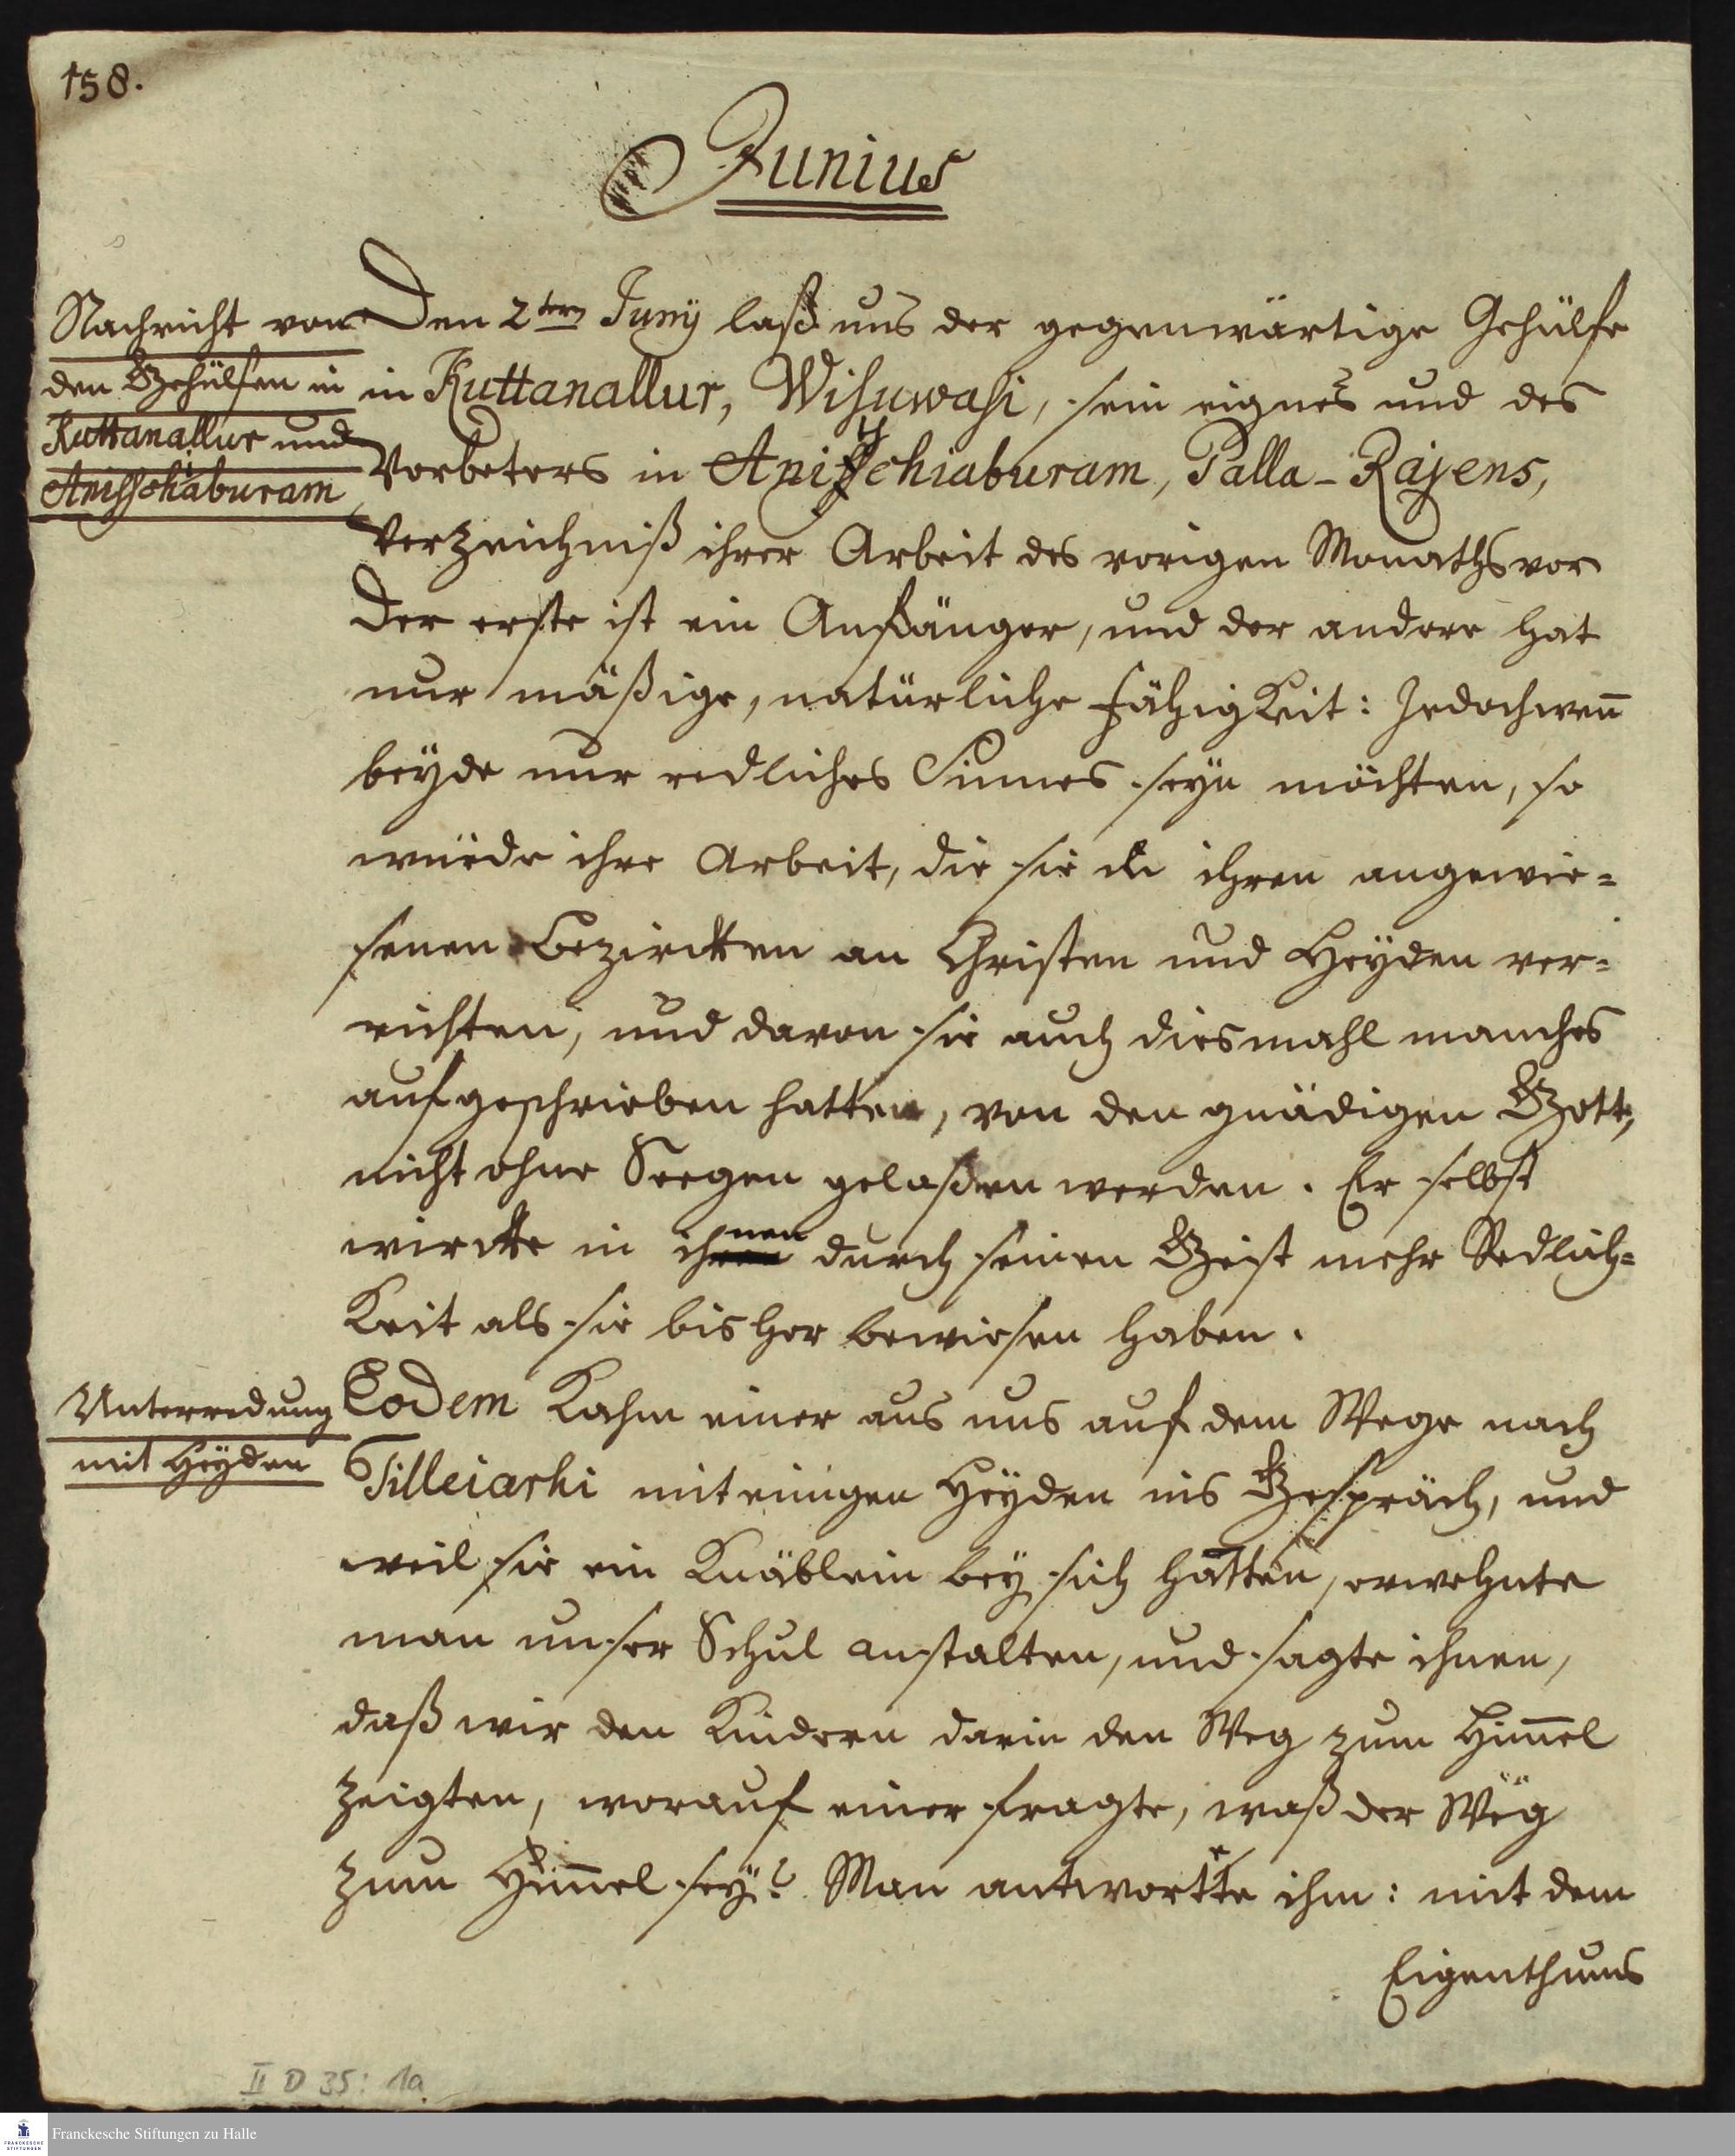 158.
Junius
Nachricht von
den Gehülfen in
Kuttanallur und
Anischiaburam
Den 2ten Junÿ laß uns der gegenwärtige Gehülfe
in Kuttanallur, Wisuwasi, sein eignes und des
Vorbeters in Anischiaburam, Palla-Rajens,
Verzeichniß ihrer Arbeit des vorigen Monaths vor
Der erste ist ein Anfänger, und der andere hat
nur mäßige, natürliche Fähigkeit: Jedoch weñ
beÿde nur redliches Sinnes seÿn möchten, so
würde ihre Arbeit, die sie in ihren angewie=
senen Bezirckten an Christen und Heÿden ver=
richten, und davon sie auch diesmahl manches
aufgeschrieben hatten, von den gnädigen Gott,
nicht ohne Seegen gelaßen werden. Er selbst
wirckte in ihnen durch seinen Geist mehr Redlich=
keit als sie bisher bewiesen haben.
Unterredung
mit Heÿden
Eodem kahm einer aus uns auf dem Wege nach
Tilleiarhi mit einigen Heÿden ins Gespräch, und
weil sie ein Knäblein beÿ sich hatten, erwehnte
man unser Schul anstalten, und sagte ihnen,
daß wir den Kindern darin den Weg zum Him̃el
zeigten, worauf einer fragte, waß der Weg
zum Him̃el seÿ? Man antwortete ihm: mit dem
Eigenthums
II D 35: 1a
Franckesche Stiftungen zu Halle